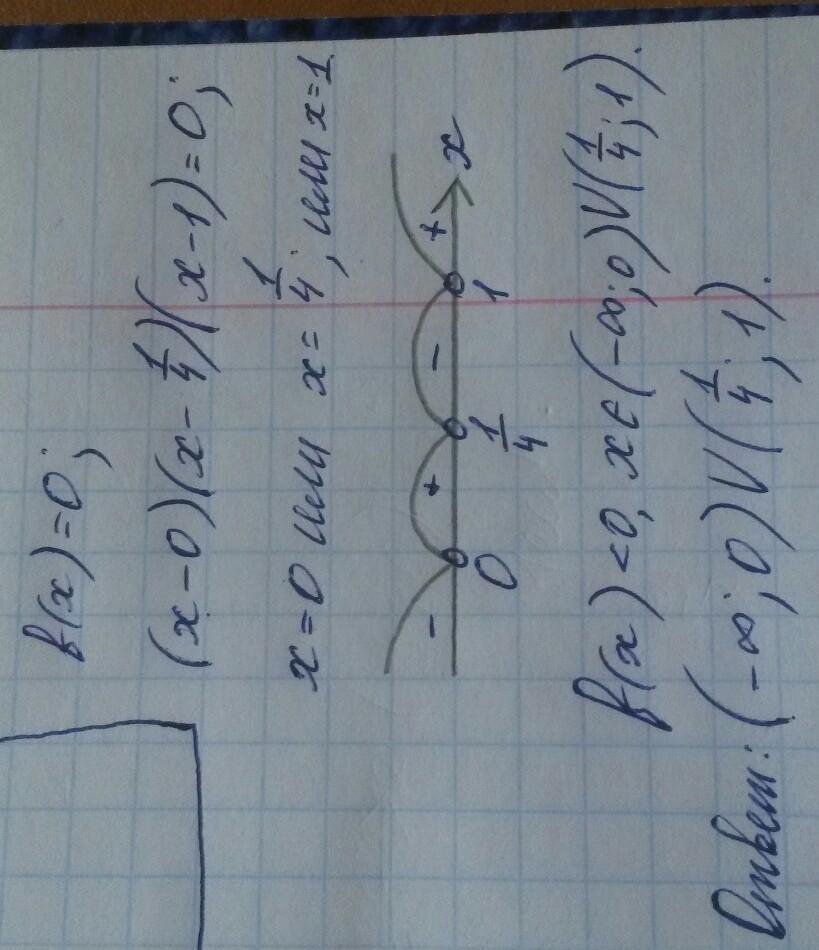 f(x)=0;
(x-0)(x-1/4)(x-1)=0;
x=0 или x=1/4; или x=1
- + - + x
0 1/4 1
f(x)<0, x∈(-∞;0)V(1/4;1).
Ответ: (-∞;0)V(1/4;1).